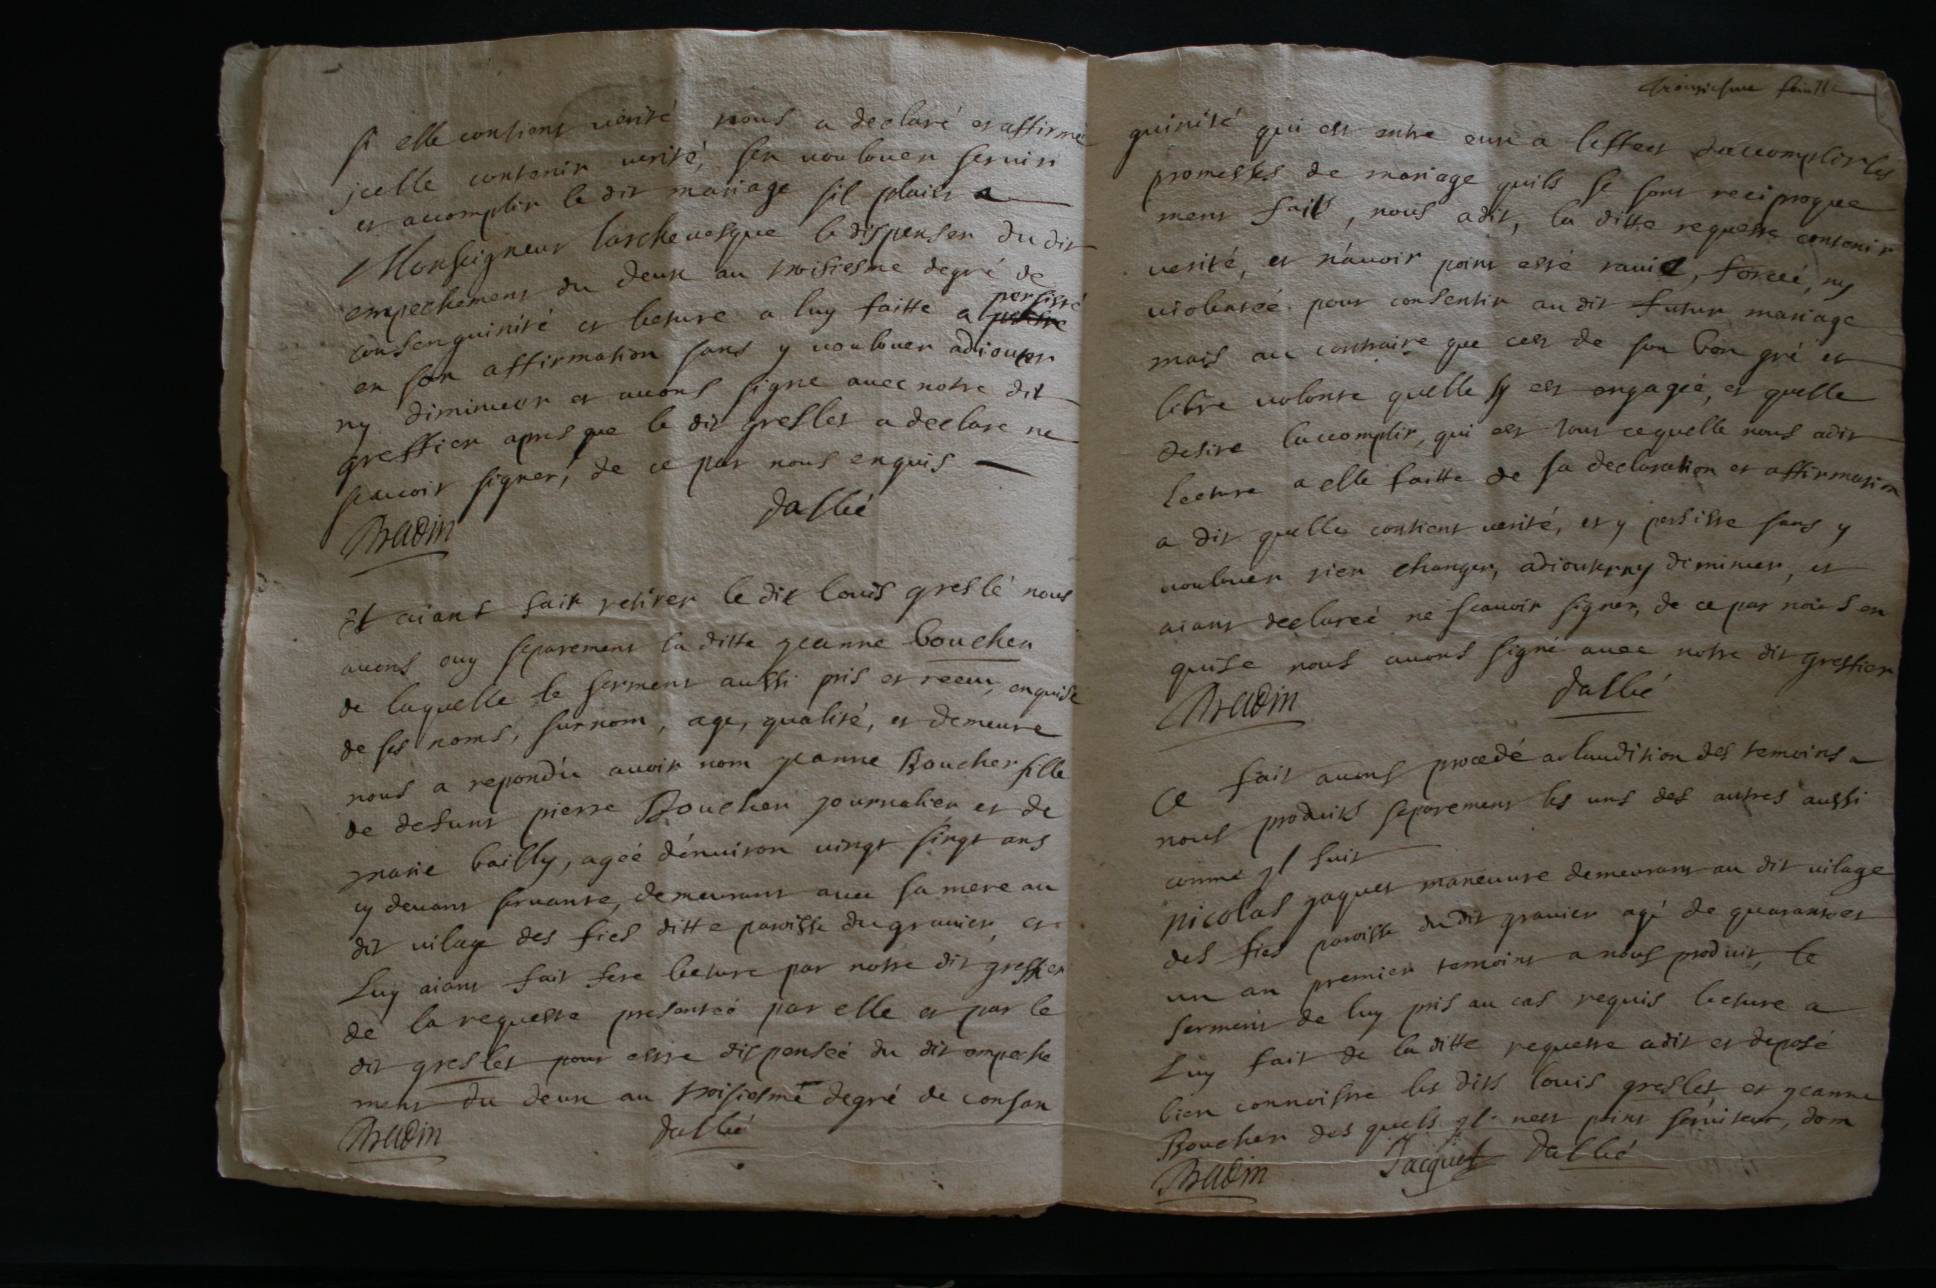 si elle contient verité nous a declaré et affirmé
jcelle contenir verité, sen voulouer servir
et accomplir le dit mariage sil plaist a
Monseigneur larchevesque le dispenser du dit
empechement du deux au troisiesme degré de
consenguinité et lecture a luy faitte a persisté
en son affirmation sans y voulouer adiouter
ny diminuer et avons signe avec notre dit
greffier apres que le dit greslet a declare ne
scavoir signer, de ce par nous enquis
Bradin dallié
Et aiant fait retirer le dit louis greslé nous
avons ouy separement la ditte jeanne boucher
de laquelle le serment aussi pris et receu, enquise
de ses noms, surnom, age, qualité, et demeure
nous a repondu avoir nom jeanne Boucher fille
de defunt pierre Boucher journalier et de
marie bailly, ageé dénviron vingt singt ans
cy devant servante, demeurant avec sa mere au
dit vilage des fies ditte paroisse du gravier, et
Luy aiant fait fere lecture par notre dit greffier
de la requeste presanteé par elle et par le
dit greslet pour estre dispenseé du dit empeche
ment du deux au troisiesme degré de consan
Bradin dallié
troisiesme feuille
guinité qui est entre eux a leffect daccomplir les
promesses de mariage quils se sont reciproque
ment fait, nous a dit, la ditte requeste contenir
verité, et n'avoir point esté ravie, forceé, ny
violenteé pour consentir au dit futur mariage
mais au contraire que cest de son bon gré et
libre volonte quelle sy est engageé, et quelle
desire laccomplir, qui est tout ce quelle nous a dit
Lecture a elle faitte de sa declaration et affirmation
a dit quelle contient verité, et y persiste sans y
voulouer rien changer, adiouter ny diminuer, et
aiant declareé ne scavoir signer, de ce par nous en
quise nous avons signé avec notre dit greffier
Bradin dallié
Ce fait avons procedé a laudition des temoins a
nous produits separement les uns des autres aussi
comme jl suit
nicolas jaquet maneuvre demeurant au dit vilage
des fies paroisse du dit gravier agé de quarante et
un an premier temoins a nous produit, le
serment de luy pris au cas requis lecture a
Luy fait de la ditte requeste a dit et deposé
bien connoistre les dits louis greslet et jeanne
Boucher des quels jl nest point serviteur, dom
Bradin Jacquet dallié